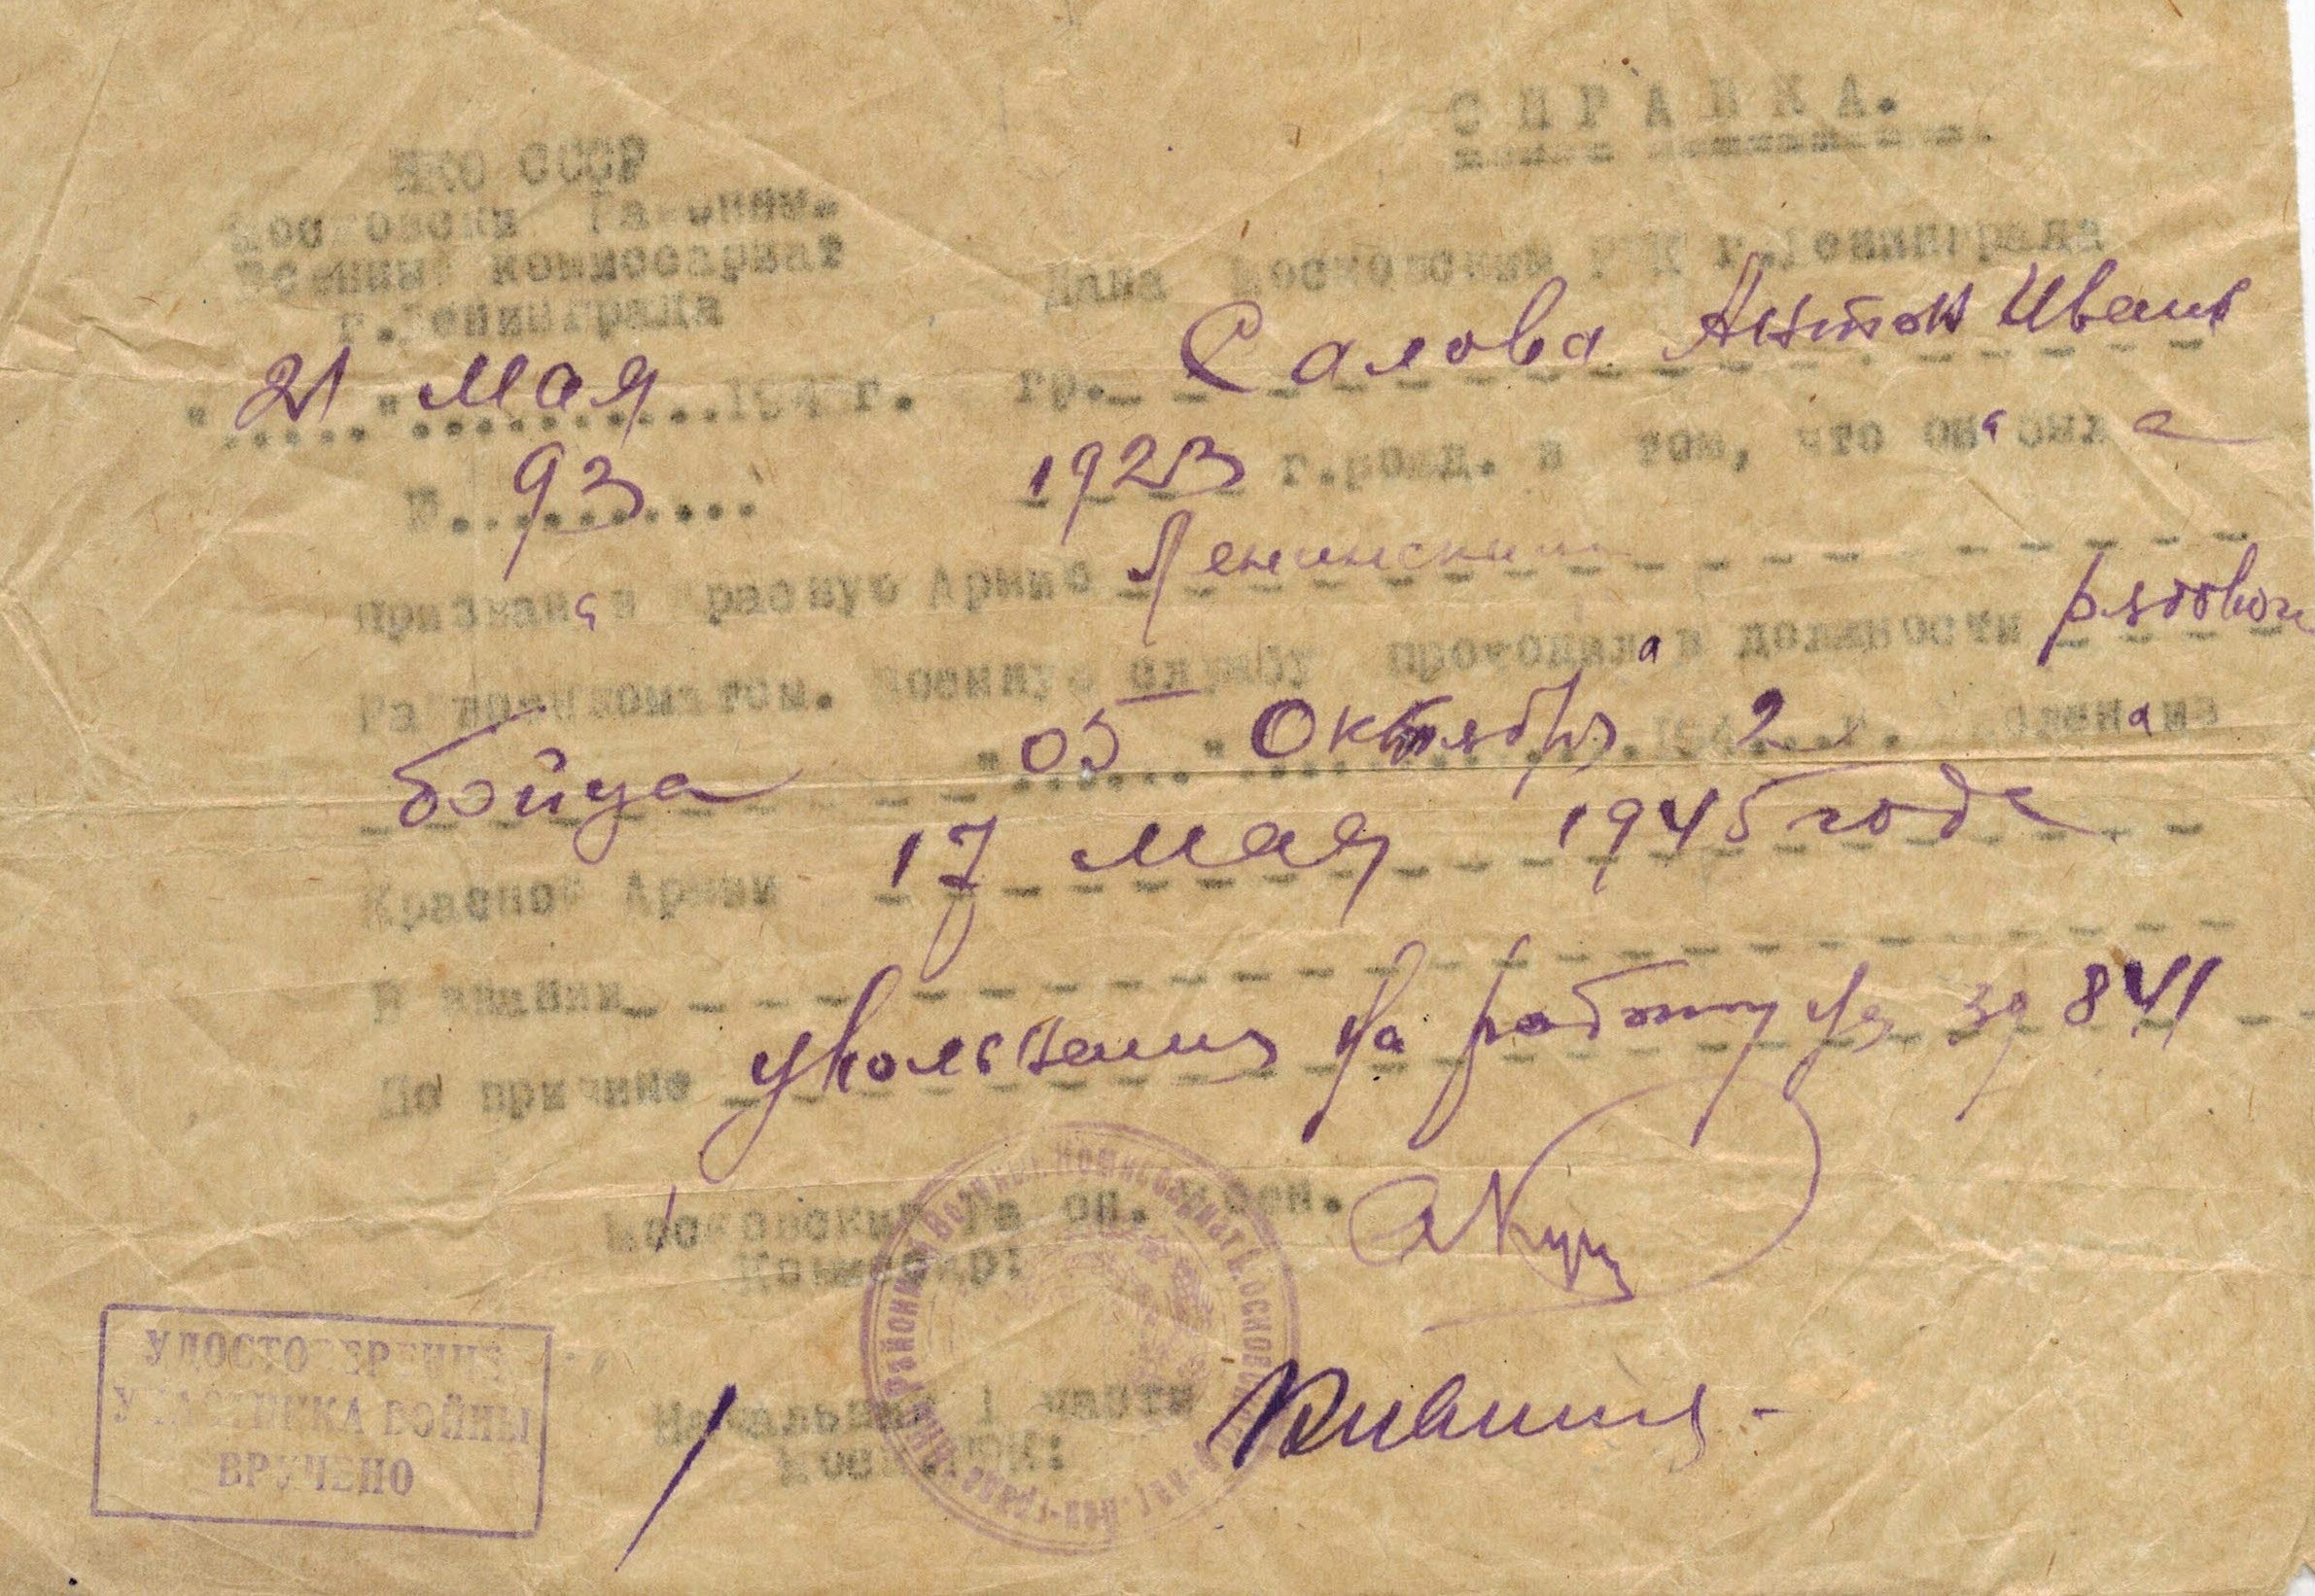 СПРАВКА.
НКО СССР
Московский Районный
Военный Комиссариат
г.Ленинграда
"21" мая 194 г.
№ 93
Дана Московским РВК г.Ленинграда
гр. Салова Антон Иван
1923 г.рожд. в том, что она была
Призвана в Красную Армию Ленинским
Райвоенкоматом. Военную службу проходила в должности рядовой
бойца "05" Октября 1942 г. уволена из
Красной Армии 17 мая 1945 года
В звании
По причине увольнения на работу
Московский Район. Воен.
Комиссар:
Начальник 1 части
Моск. РВК:
Районный Военный Комиссариат Московск
УДОСТОВЕРЕНИЕ
УЧАСТНИКА ВОЙНЫ
ВРУЧЕНО